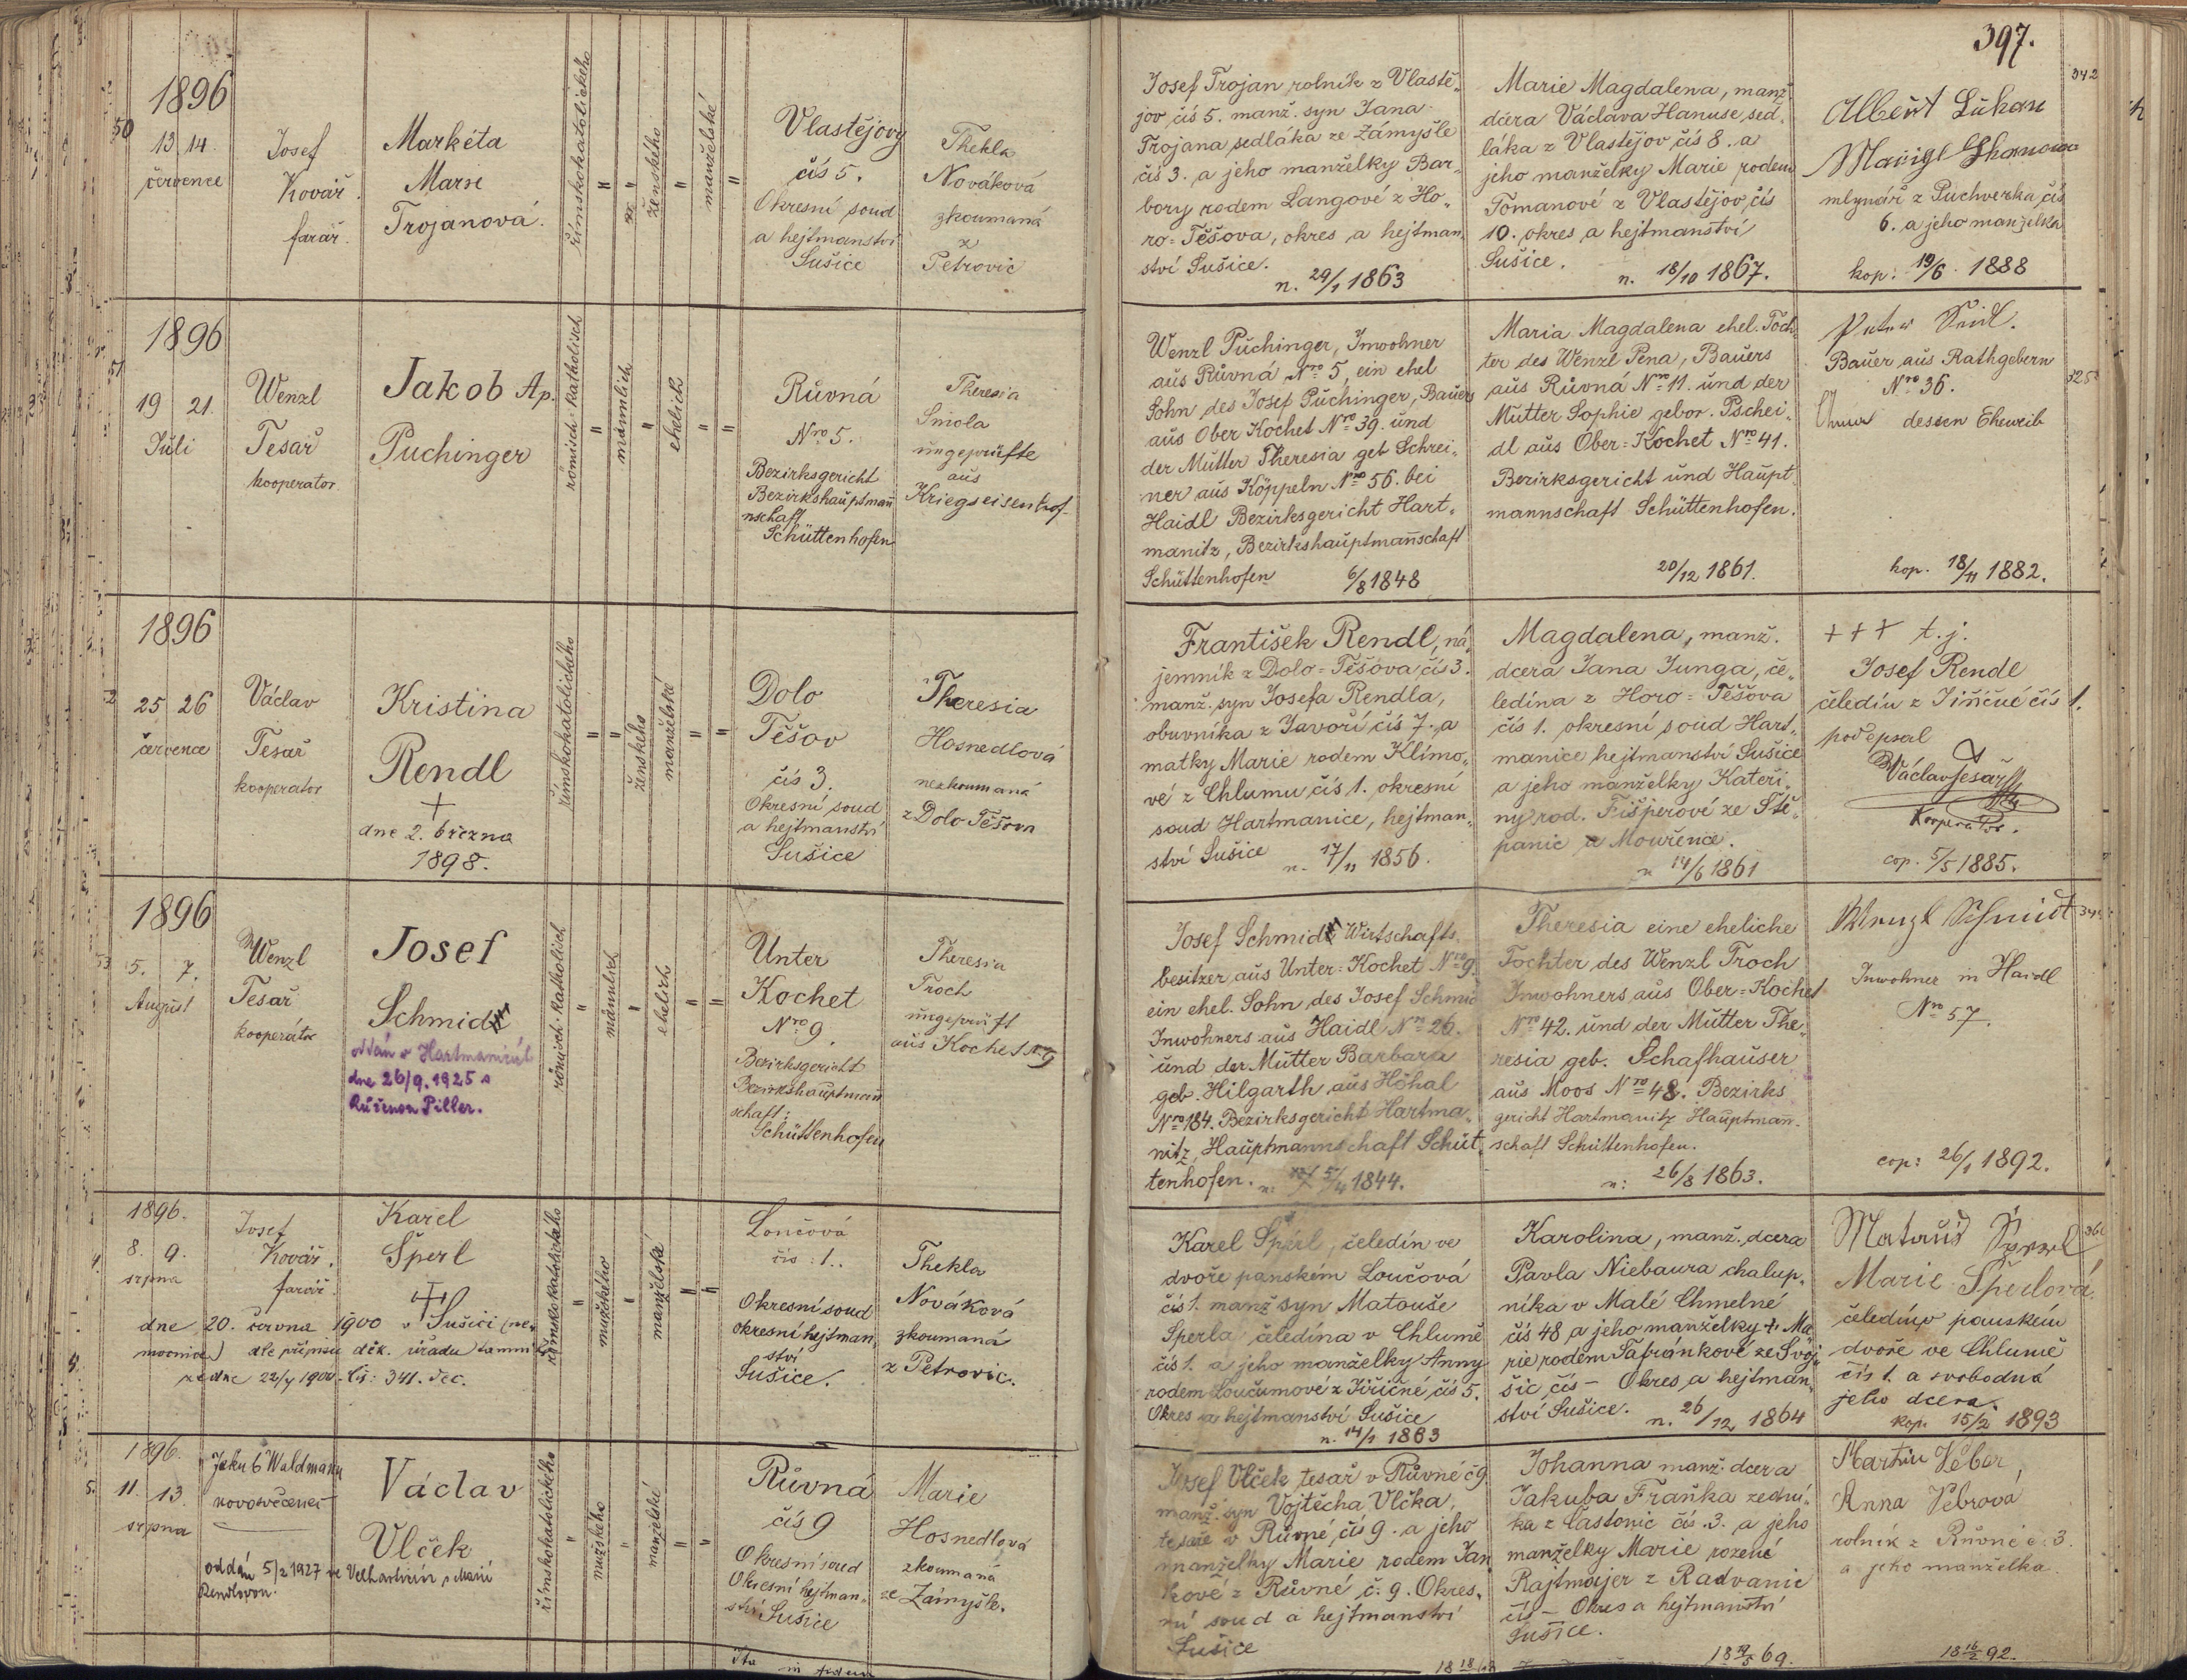 397.
1896
50
13. 14.
července
Josef
Kovář.
farář.
Markéta
Marie
Trojanová.
římskokatolického
ženského
manželské
Vlastějovy
čís 5.
Okresní soud
a hejtmanství
Sušice
Thekla
Nováková
zkoumaná
z
Petrovic
Josef Trojan rolník z Vlastě-
jov čís 5. manž. syn Jana
Trojana sedláka ze Zámyšle
čís 3. a jeho manželky Bar-
bory rodem Langové z Ho-
ro-Těšova, okres a hejtman-
ství Sušice.
n. 29/1 1863
Marie Magdalena, manž
dcera Václava Hanuse, sed-
láka z Vlastějov čís 8. a
jeho manželky Marie rodem
Tomanové z Vlastějov čís
10. okres a hejtmanství
Sušice.
n. 18/10 1867.
342
Albert Lukan
mlynář z Puchverka čís
6. a jeho manželka
kop: 19/6. 1888
1896
51
19 21.
Juli
Wenzl
Tesař
kooperator.
Jakob Ap.
Puchinger
römisch-katholisch
männlich
ehelich
Růvná
Nro 5.
Bezirksgericht
Bezirkshauptman̄
nschaft
Schüttenhofen
Theresia
Smola
ungeprüfte
aus
Kriegseisenhof-
Wenzl Puchinger, Inwohner
aus Růvná Nro 5, ein ehel
Sohn des Josef Puchinger, Bauers
aus Ober Kochet Nro 39. und
der Mutter Theresia geb Schrei-
ner aus Köppeln Nro 56. bei
Haidl Bezirksgericht Hart-
manitz, Bezirkshauptman̄schaft
Schüttenhofen 6/8 1848
Maria Magdalena ehel. Töch-
ter des Wenzl Pena, Bauers
aus Růvná Nro 11. und der
Mutter Sophie gebor. Pschei-
dl aus Ober-Kochet Nro 41.
Bezirksgericht und Haupt-
mannschaft Schüttenhofen.
20/12 1861.
Peter Seidl.
Bauer aus Rathgebern
Nro 36.
325
Anna dessen Eheweib
kop. 18/11 1882.
1896
25 26
července
Václav
Tesař
kooperator
Kristina
Rendl
+
dne 2. března
1898.
římskokatolického
ženského
manželské
Dolo
Těšov
čís 3.
Okresní soud
a hejtmanství
Sušice
Theresia
Hosnedlová
nezkoumaná
z Dolo Těšova
František Rendl, ná-
jemník z Dolo-Těšova čís 3.
manž. syn Josefa Rendla,
obuvníka z Javoří čís 7. a
matky Marie rodem Klímo-
vé z Chlumu čís 1. okresní
soud Hartmanice, hejtman-
ství Sušice
n. 17/11 1856.
Magdalena, manž.
dcera Jana Junga, če-
ledína z Horo-Těšova
čís 1. okresní soud Hart-
manice hejtmanství Sušice
a jeho manželky Kateři-
ny rod. Fišperové ze Stě-
panic z Mouřence.
n 14/6 1861
+++ t.j.
Josef Rendl
čeledín z Jiřičné čís 1.
podepsal
Václav Tesař
Kooperátor.
cop. 5/5 1885.
1896
53
5. 7.
August
Wenzl
Tesař
kooperátor
Josef
Schmidt
oddán v Hartmanicích
dne 26/9. 1925 s
Růženou Piller.
römisch-katholisch
männlich
ehelich
Unter
Kochet
Nro 9.
Bezirksgericht
Bezirkshauptman̄
schaft:
Schüttenhofen
Theresia
Troch
ungeprüft
aus Kochet N. 9
Josef Schmidt Wirtschafts-
besitzer aus Unter-Kochet Nro 9.
ein ehel. Sohn des Josef Schmid
Inwohners aus Haidl Nro 26.
und der Mutter Barbara
geb. Hilgarth aus Höhal
Nro 184. Bezirksgericht Hartma-
nitz, Hauptmannschaft Schüt-
tenhofen. n: 5/4 1844.
Theresia eine eheliche
Tochter des Wenzl Troch
Inwohners aus Ober-Kochet
Nro 42. und der Mutter The-
resia geb. Schafhauser
aus Moos Nro 48. Bezirks
gericht Hartmanitz Hauptman̄-
schaft Schüttenhofen.
n: 26/8 1863.
Wenzl Schmidt
Inwohner in Haidl
Nro 57.
cop: 26/1 1892.
1896.
8. 9.
srpna
Josef
Kovář.
farář.
Karel
Šperl
dne 20. června 1900 v Sušici (ne-
mocnice) dle přípisu děk. úřadu tamní
ze dne 22/7 1900 čís: 341. dec.
římskokatolického
mužského
manželské
Loučová
čís: 1.
Okresní soud
okresní hejtman-
ství
Sušice.
Thekla
Nováková
zkoumaná
z Petrovic.
Karel Šperl, čeledín ve
dvoře panském Loučová
čís 1. manž syn Matouše
Šperla čeledína v Chlumě
čís 1. a jeho manželky Anny
rodem Loučumové z Jiřičné čís 5.
Okres a hejtmanství Sušice
n. 14/1 1863
Karolina, manž. dcera
Pavla Niebaura chalup-
níka v Malé Chmelné
čís 48 a jeho manželky + Ma-
rie rodem Šafránkové ze Svoj-
šic čís - Okres a hejtman-
ství Sušice. n. 26/12 1864
Matouš Šperl
Marie Šperlová
čeledín v panském
dvoře ve Chlumě
čís 1. a svobodná
jeho dcera.
kop. 15/2 1893
1896.
11. 13.
srpna
Jakub Waldmann
novosvěcenec
Václav
Vlček
oddán 5/2 1927 ve Velharticích s Marií
Rendlovou.
římskokatolického
mužského
manželské
Růvná
čís 9
Okresní soud
Okresní hejtman-
ství Sušice
Marie
Hosnedlová
zkoumaná
ze Zámyšle.
Josef Vlček, tesař v Růvné č 9.
manž. syn Vojtěcha Vlčka,
tesaře v Růvné, čís 9. a jeho
manželky Marie rodem Jan
kové z Růvné č. 9. Okres-
ní soud a hejtmanství
Sušice
Johanna manž. dcera
Jakuba Fraňka zední-
ka z Častonic čís. 3. a jeho
manželky Marie rozené
Rajtmajer z Radvanic
čís - Okres a hejtmanství
Sušice.
Martin Veber,
Anna Vebrová
rolník z Růvné č. 3.
a jeho manželka.
18 16/2 92.